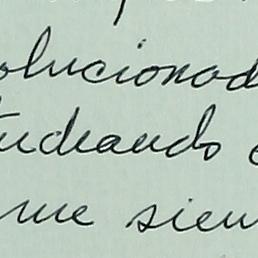 olucionad
tudiando
me sien